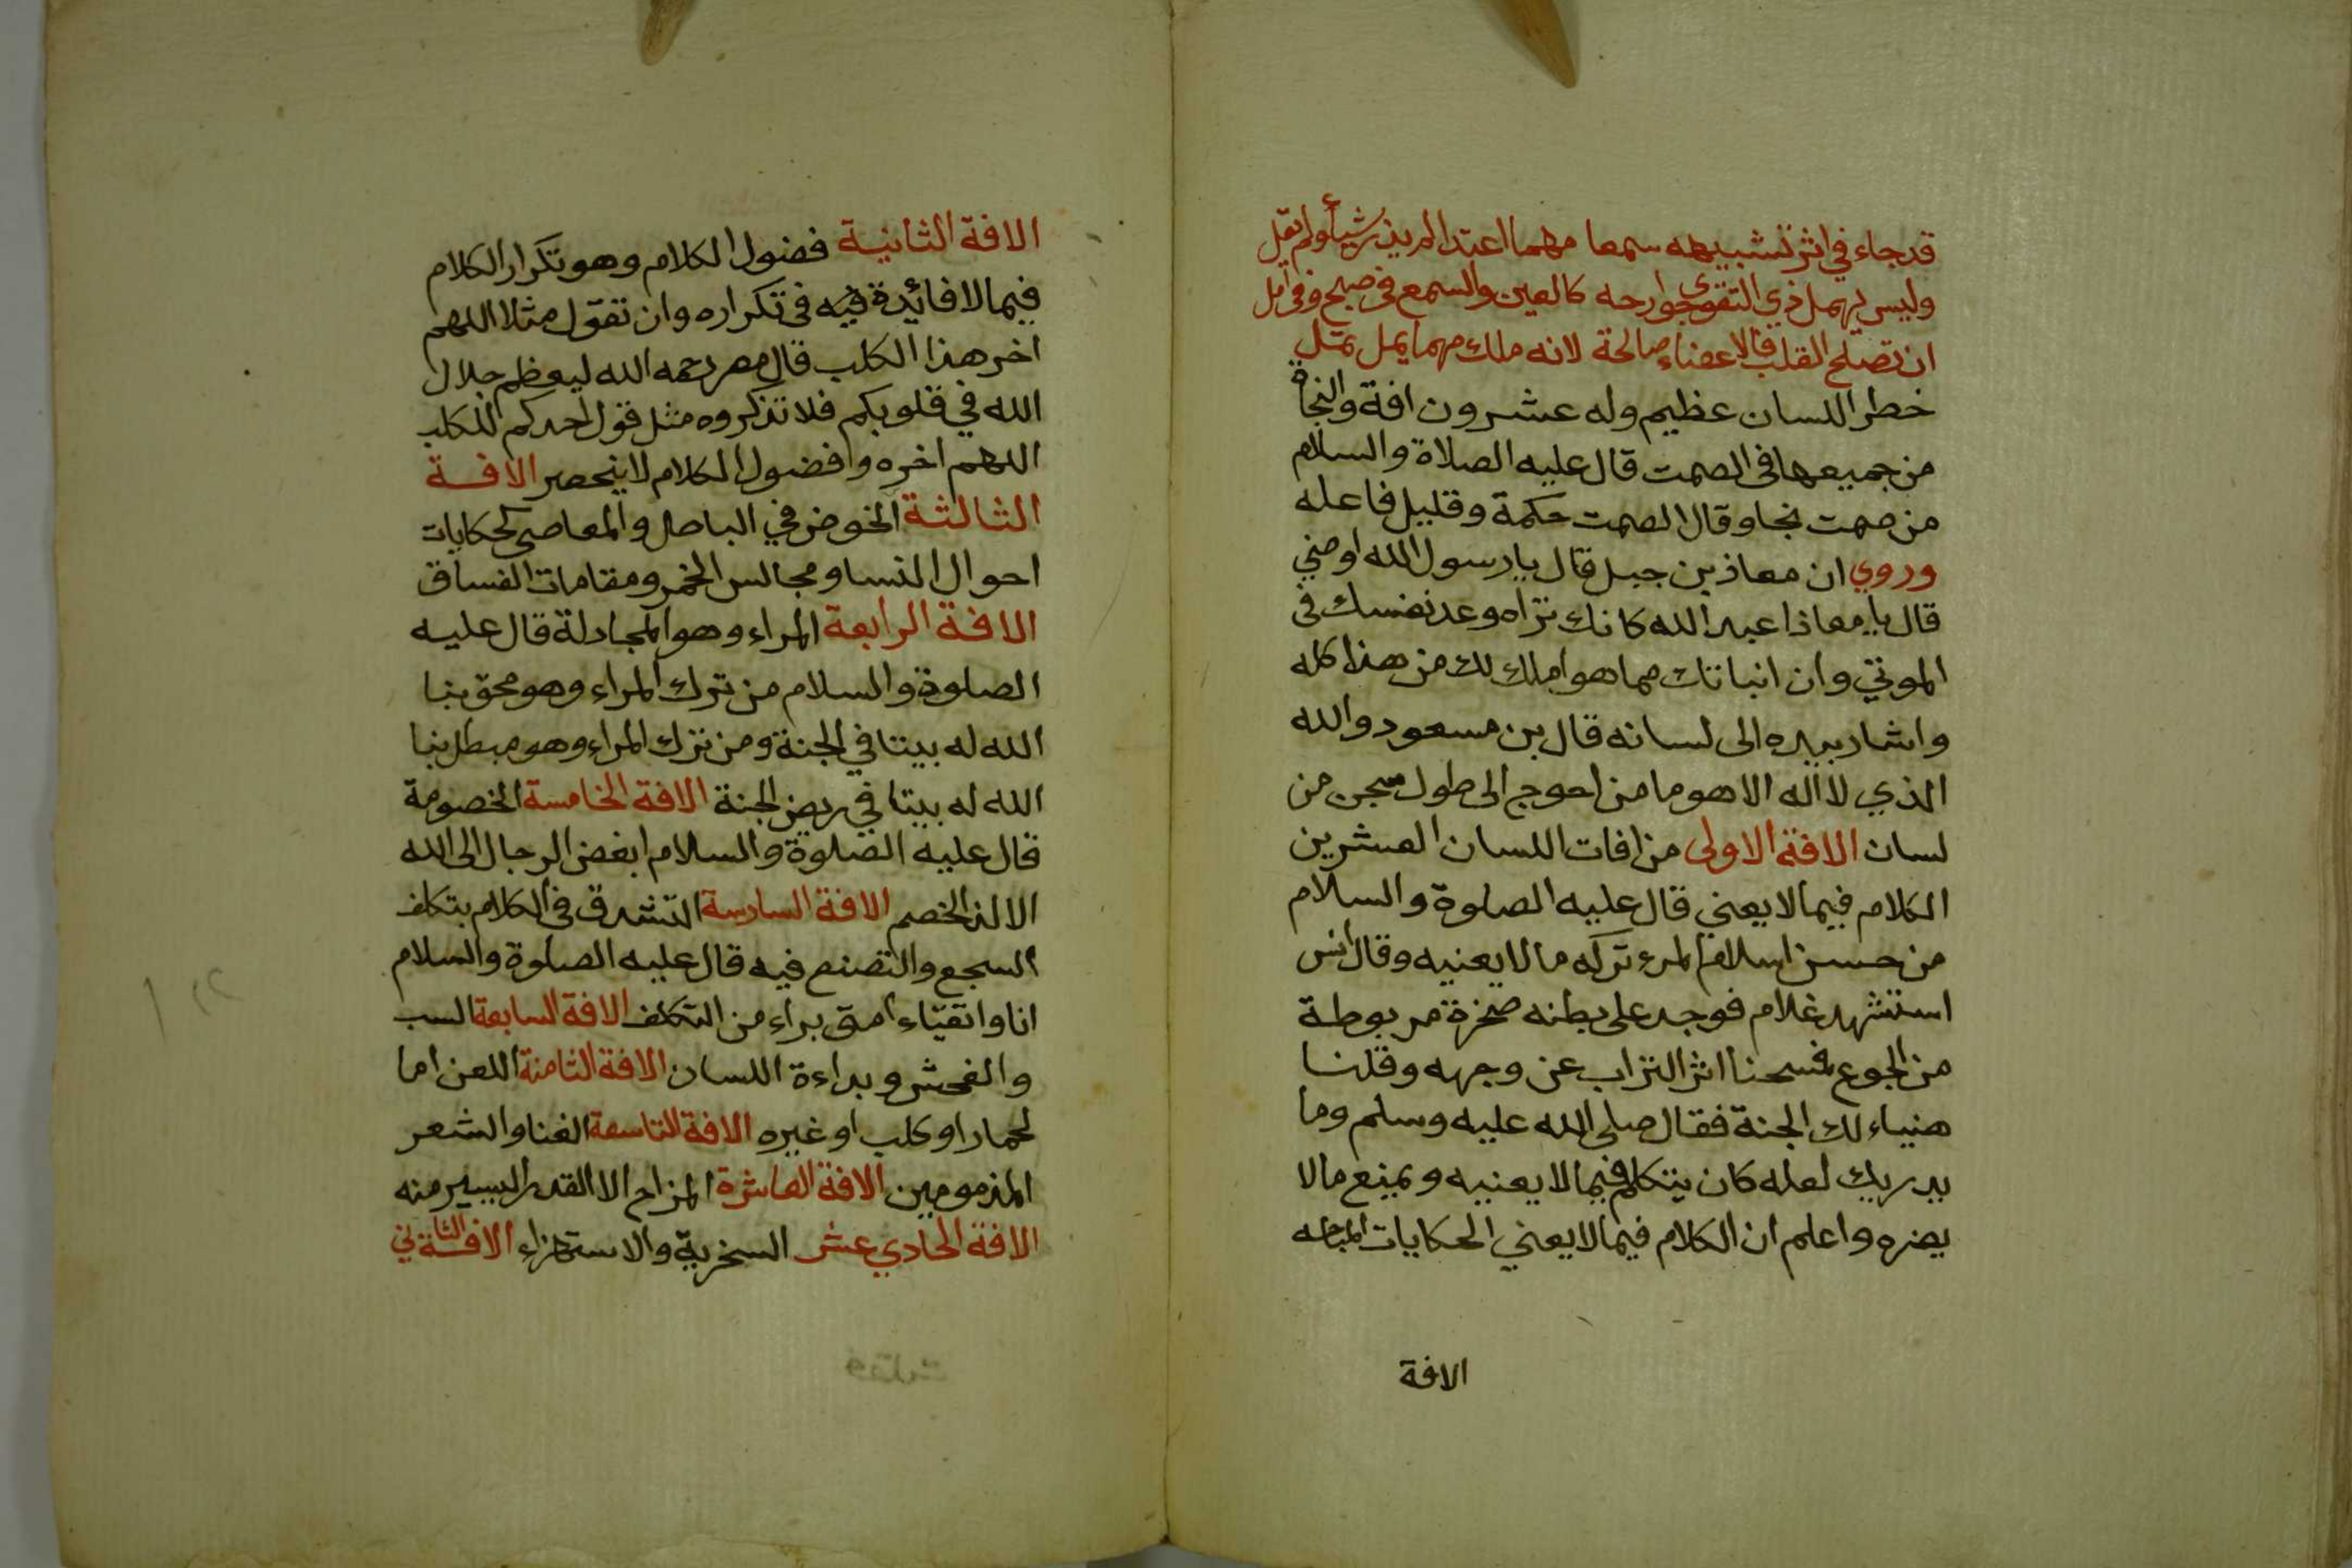 قد جاء في اثر تشبيهه سمعا مهما اعتد المريد شيأ ولم يقل
وليس يهمل ذي التقوى جوارحه كالعين والسمع في صبح وفي اصل
ان تصلح القلب فالاعضاء صالحة لانه ملك مهما يمل تمل
خطر اللسان عظيم وله عشرون افة والنجاة
من جميعها في الصمت قال عليه الصلاة والسلام
من صمت نجا وقال الصمت حكمة وقليل فاعله
وروي ان معاذ بن جبل قال يا رسول الله اوصني
قال يا معاذ اعبد الله كانك تراه وعد نفسك في
الموتي وان انباتك مما هو املك لك من هذا كله
واشار بيده الى لسانه قال بن مسعود والله
الذي لا اله الا هو ما من احوج الى طول سجن من
لسان الافة الاولى من افات اللسان العشرين
الكلام فيما لا يعني قال عليه الصلوة والسلام
من حسن اسلام المرء تركه ما لا يعنيه وقال انس
استشهد غلام فوجد على بطنه صخرة مربوطة
من الجوع فمسحنا اثر التراب عن وجهه وقلنا
هنياء لك الجنة فقال صلى الله عليه وسلم وما
يدريك لعله كان يتكلم فيما لا يعنيه ويمنع مالا
يضره واعلم ان الكلام فيما لا يعني الحكايات المباحه
الافة
الافة الثانية فضول الكلام وهو تكرار الكلام
فيما لا فائدة فيه في تكراره وان تقول مثلا اللهم
اخر هذا الكلب قال رحمه الله ليعظم جلال
الله في قلوبكم فلا تذكروه مثل قول احدكم للكلب
اللهم اخره وا فضول الكلام لا ينحصر الافة
الثالثة الخوض في الباطل والمعاصي كحكايات
احوال النسا ومجالس الخمر ومقامات الفساق
الافة الرابعة المراء وهو المجادلة قال عليه
الصلوة والسلام من ترك المراء وهو محق بنا
الله له بيتا في الجنة ومن ترك المراء وهو مبطل بنا
الله له بيتا في ربض الجنة الافة الخامسة الخصومة
قال عليه الصلوة والسلام ابغض الرجال الى الله
الالد الخصم الافة السادسة التشدق في الكلام بتكلف
السجع والتصنع فيه قال عليه الصلوة والسلام
انا واتقياء امتي براء من التكلف الافة السابعة السب
والفحش وبداءة اللسان الافة الثامنة اللعن اما
لحمار او كلب او غيره الافة التاسعة الغنا والشعر
المذمومين الافة العاشرة المزاح الا القدر اليسير منه
الافة الحادي عشر السخرية والاستهزاء الافة الثاني